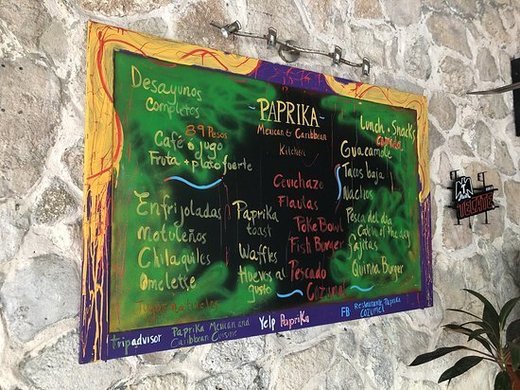 Desayunos
completos
89 Pesos
Café o jugo
Fruta + plato fuerte
Enfrijoladas
Motuleños
Chilaquiles
Omelette
- PAPRIKA -
Mexican & Caribbean
Kitchen
Paprika
toast
Waffles
Huevos al
gusto
Cevichazo
Flautas
Poke Bowl
Fish Burger
Pescado
Cozumel
Lunch + Snacks
comida
Guacamole
Tacos baja
Nachos
Pesca del dia
Catch of the day
Fajitas
Quinua Burger
tripadvisor
Paprika Mexican and
Caribbean Cuisine
Yelp Paprika
FB Restaurante Paprika
Cozumel
WELCOME